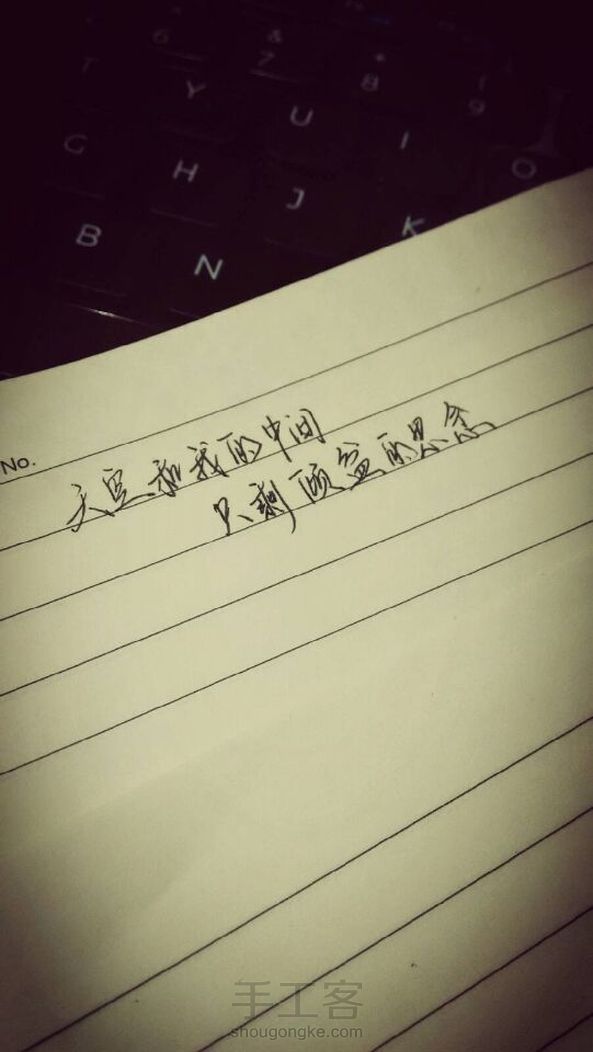 6 & 7 * 8 ( 9
T Y U I O
G H J K
B N
No.
天空和我的中间
只剩倾盆的思念
手工客
shougongke.com